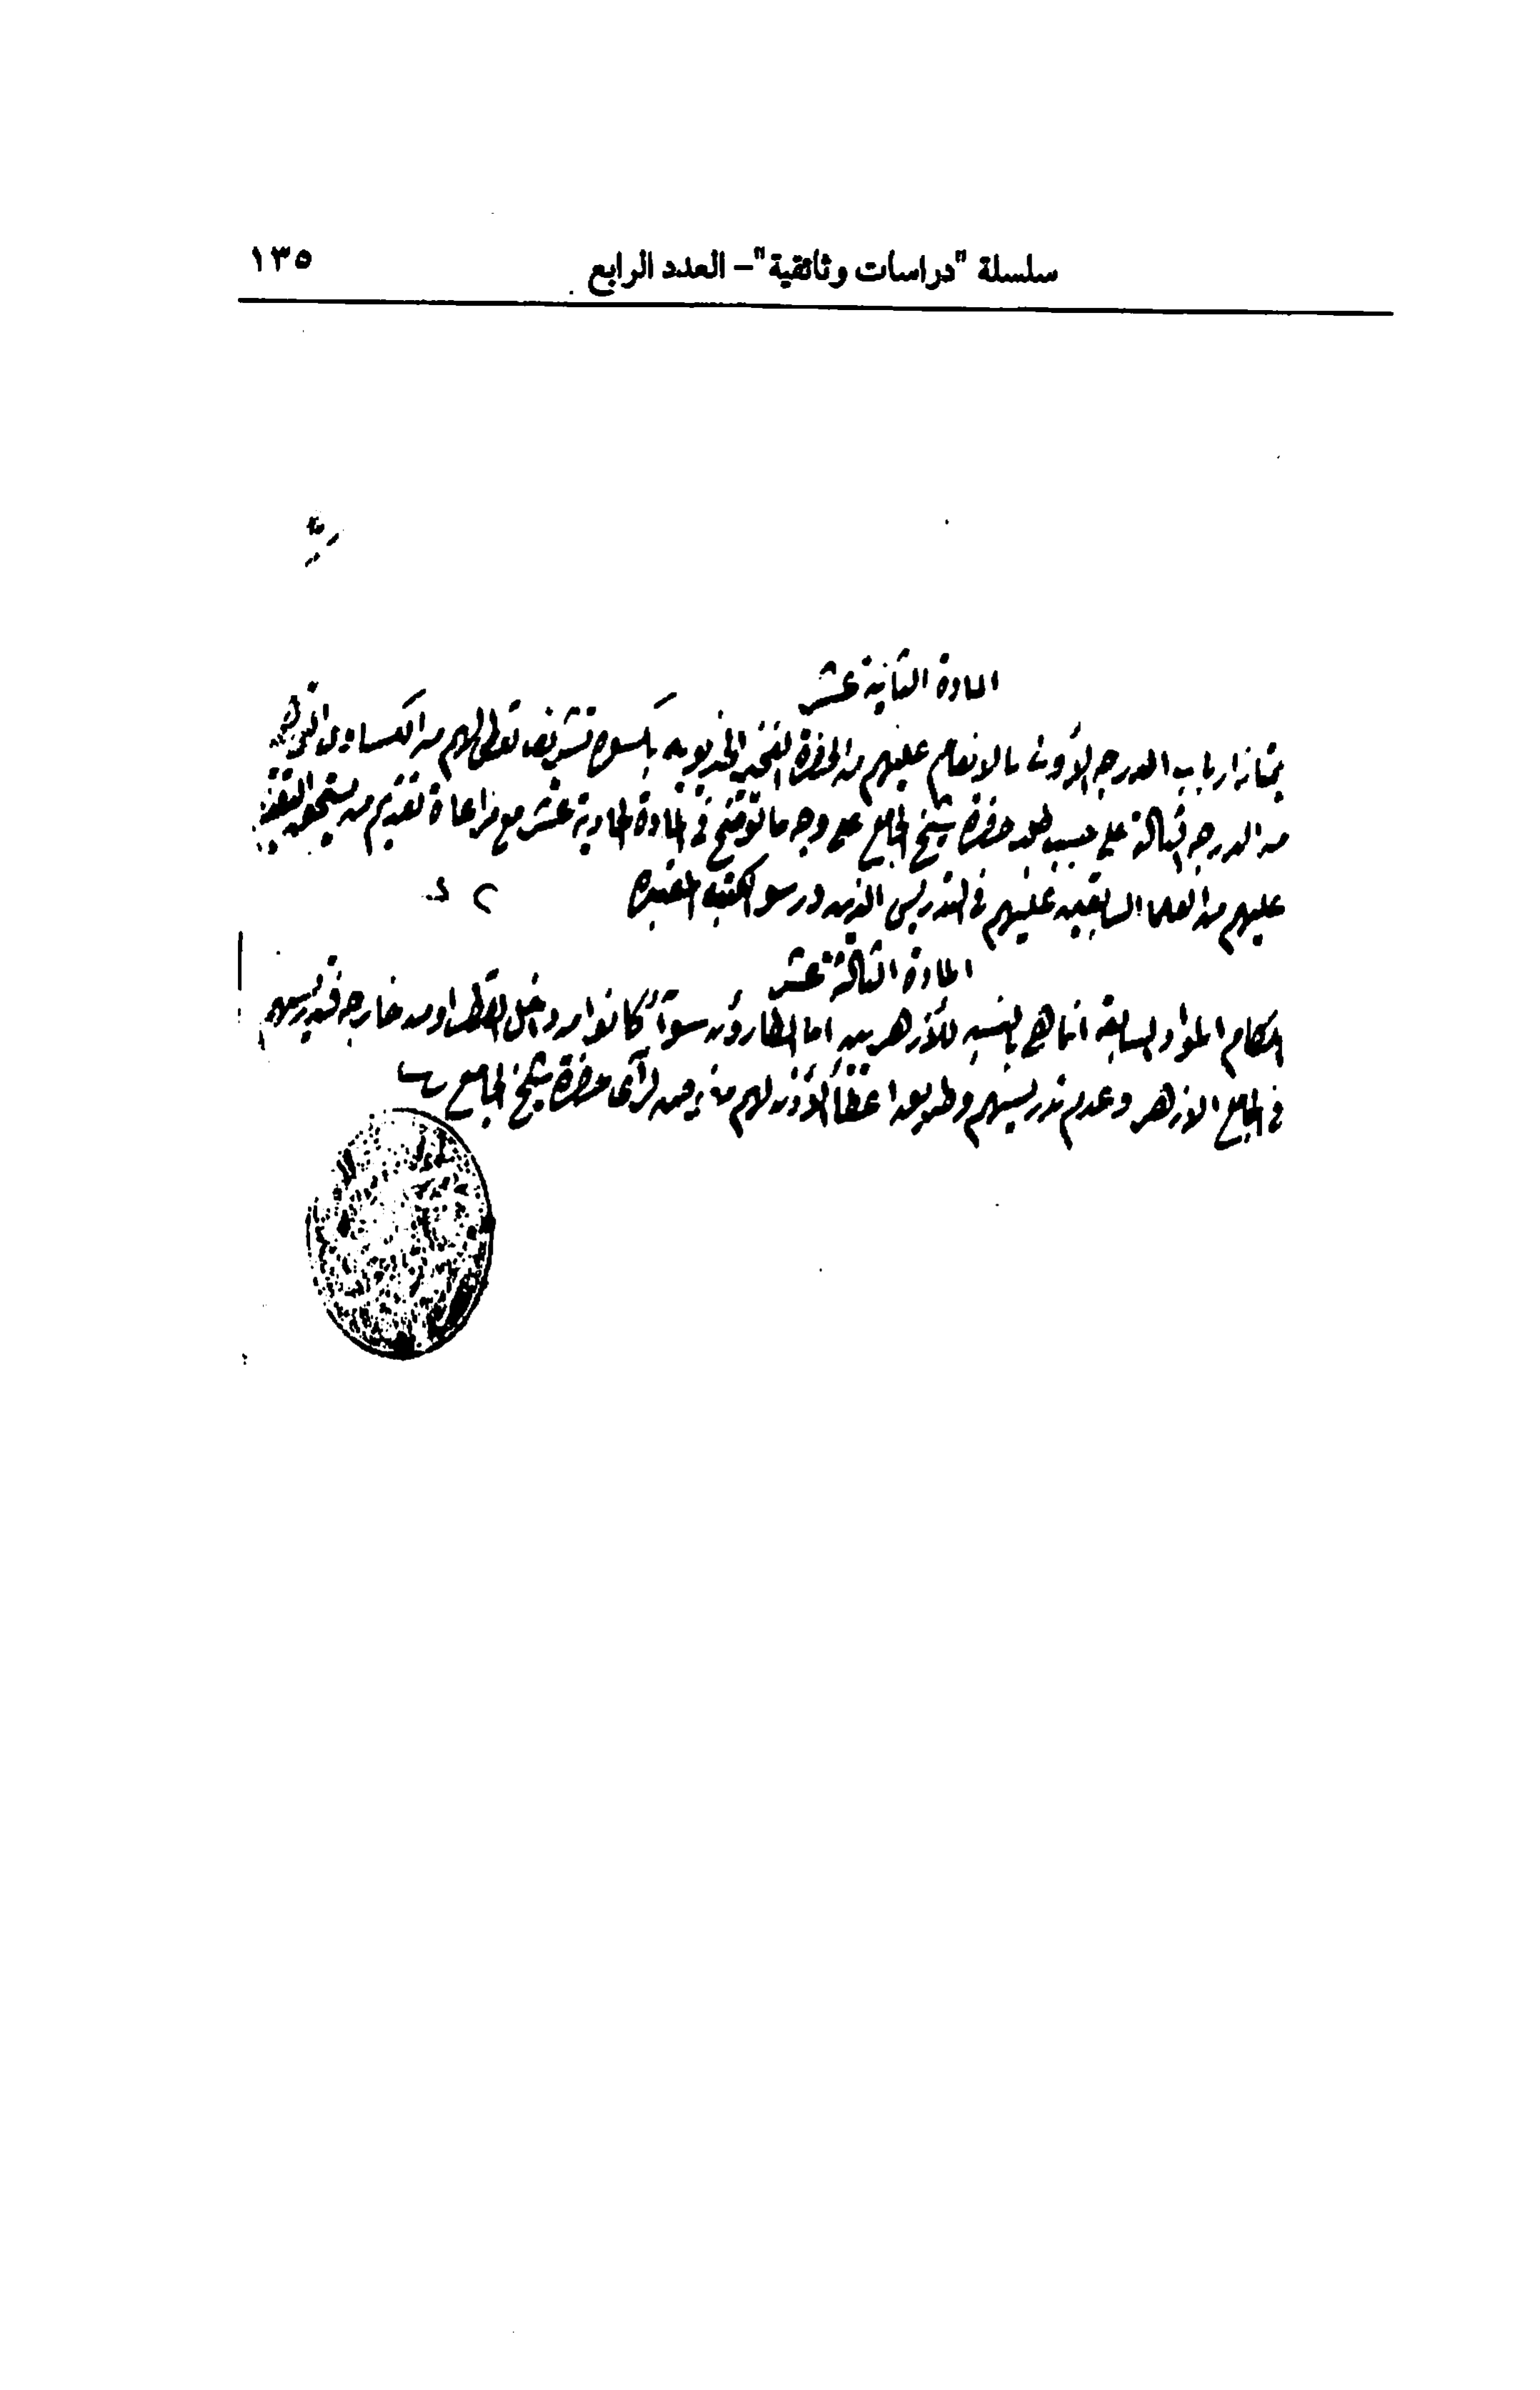 سلسلة "دراسات وثائقية" – العدد الرابع ١٣٥
المادة الثانية عشر
يمتاز ارباب الدرجه الأولى بالانعام عليهم من الحضرة الفخيمه الخديويه بكسوة تشريف تعطى لهم من الكساوى
من الدرجه الثالثة على حسب طلب حضرة شيخ الجامع على وجه ما توضح فى المادة الحادية عشر مع مراعاة تقديم من يستحق التقديم
عليهم من العلما السابقين عليهم فى التدريس الذين درسوا الكتب المعتبره
المادة الثالثة عشر
احكام المواد السابقة انما هى بالنسبه للأزهريين اما الطارؤن سوآء كانوا من داخل القطر او من خارجه فتدريسهم
فى الجامع الازهر وعدم تدريسهم وطريق اعطآ الأذن لهم مفوض لرأى حضرة شيخ الجامع